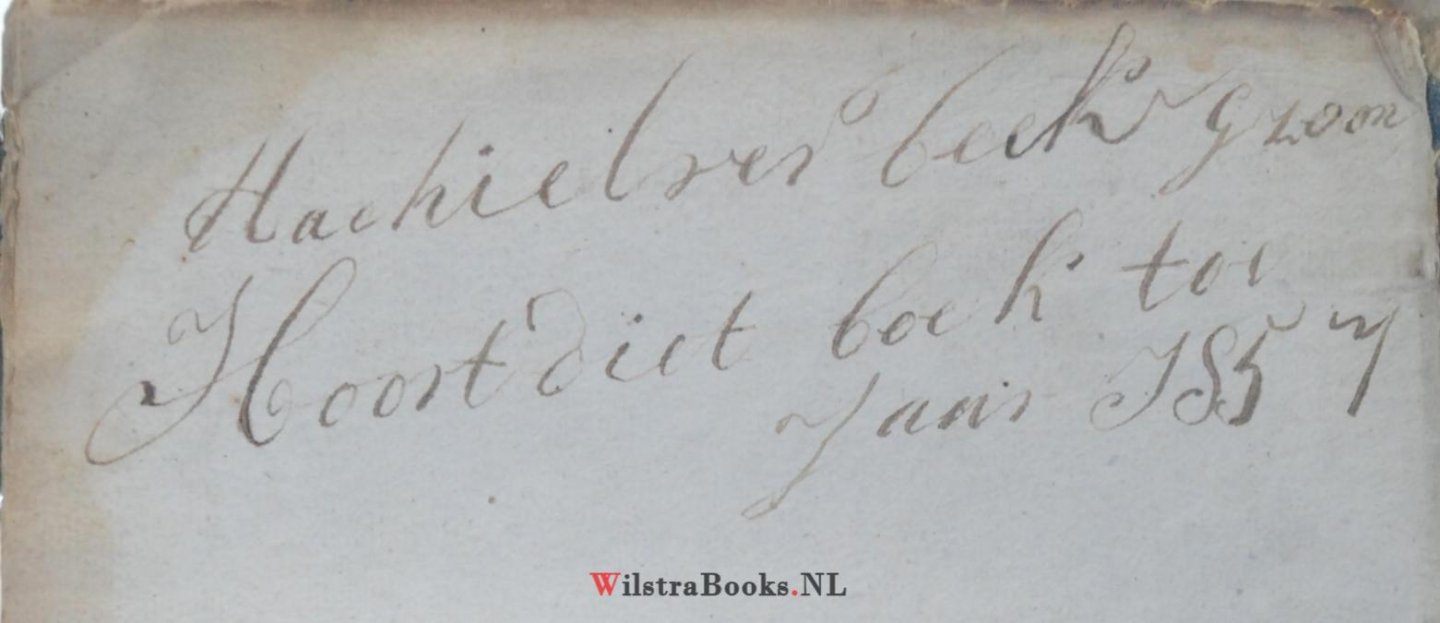 Machiel ver beek Gzoon
Hoort diet boek toe
Jaar 1857
WilstraBooks.NL